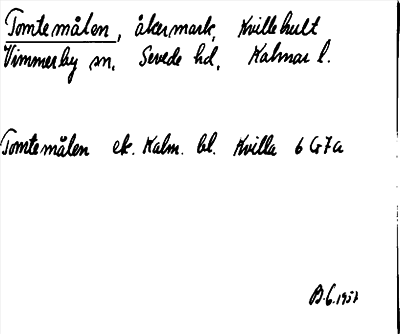 Tomtemålen, åkermark, Kvillehult
Vimmerby sn, Sevede hd, Kalmar l.
Tomtemålen ek. Kalm. bl. Kvilla 6 G7a
B.G. 1957